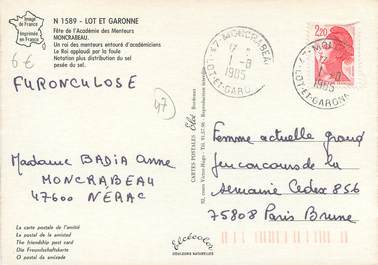 Image
de France
Imprimée
en France
N 1589 - LOT ET GARONNE
Fête de l'Académie des Menteurs
MONCRABEAU.
Un roi des menteurs entouré d'académiciens
Le Roi applaudi par la foule
Notation plus distribution du sel
pesée du sel.
6€
FURONCULOSE
47
Madame BADIA Anne
MONCRABEAU
47600 NÉRAC
La carte postale de l'amitié
La postal de la amistad
The friendship post card
Die Freundschaftskarte
O postal da amizade
CARTES POSTALES Elcé Bordeaux
47-MONCRABEAU
1-8
1985
LOT-ET-GARONNE
47-MONCRABEAU
1985
LOT-ET-GARONNE
2,20
Femme actuelle grand
Jeu concours de la
Semaine Cedex 856
75808 Paris Brune
Elcécolor
COULEURS NATURELLES